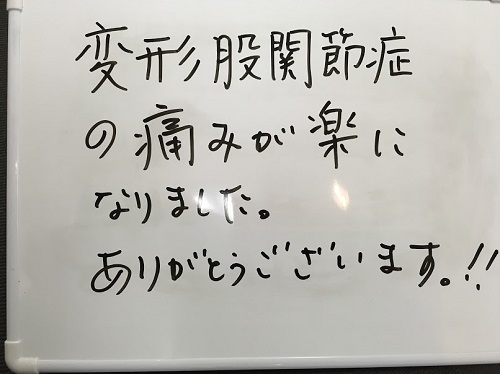 変形股関節症
の痛みが楽に
なりました。
ありがとうございます。!!